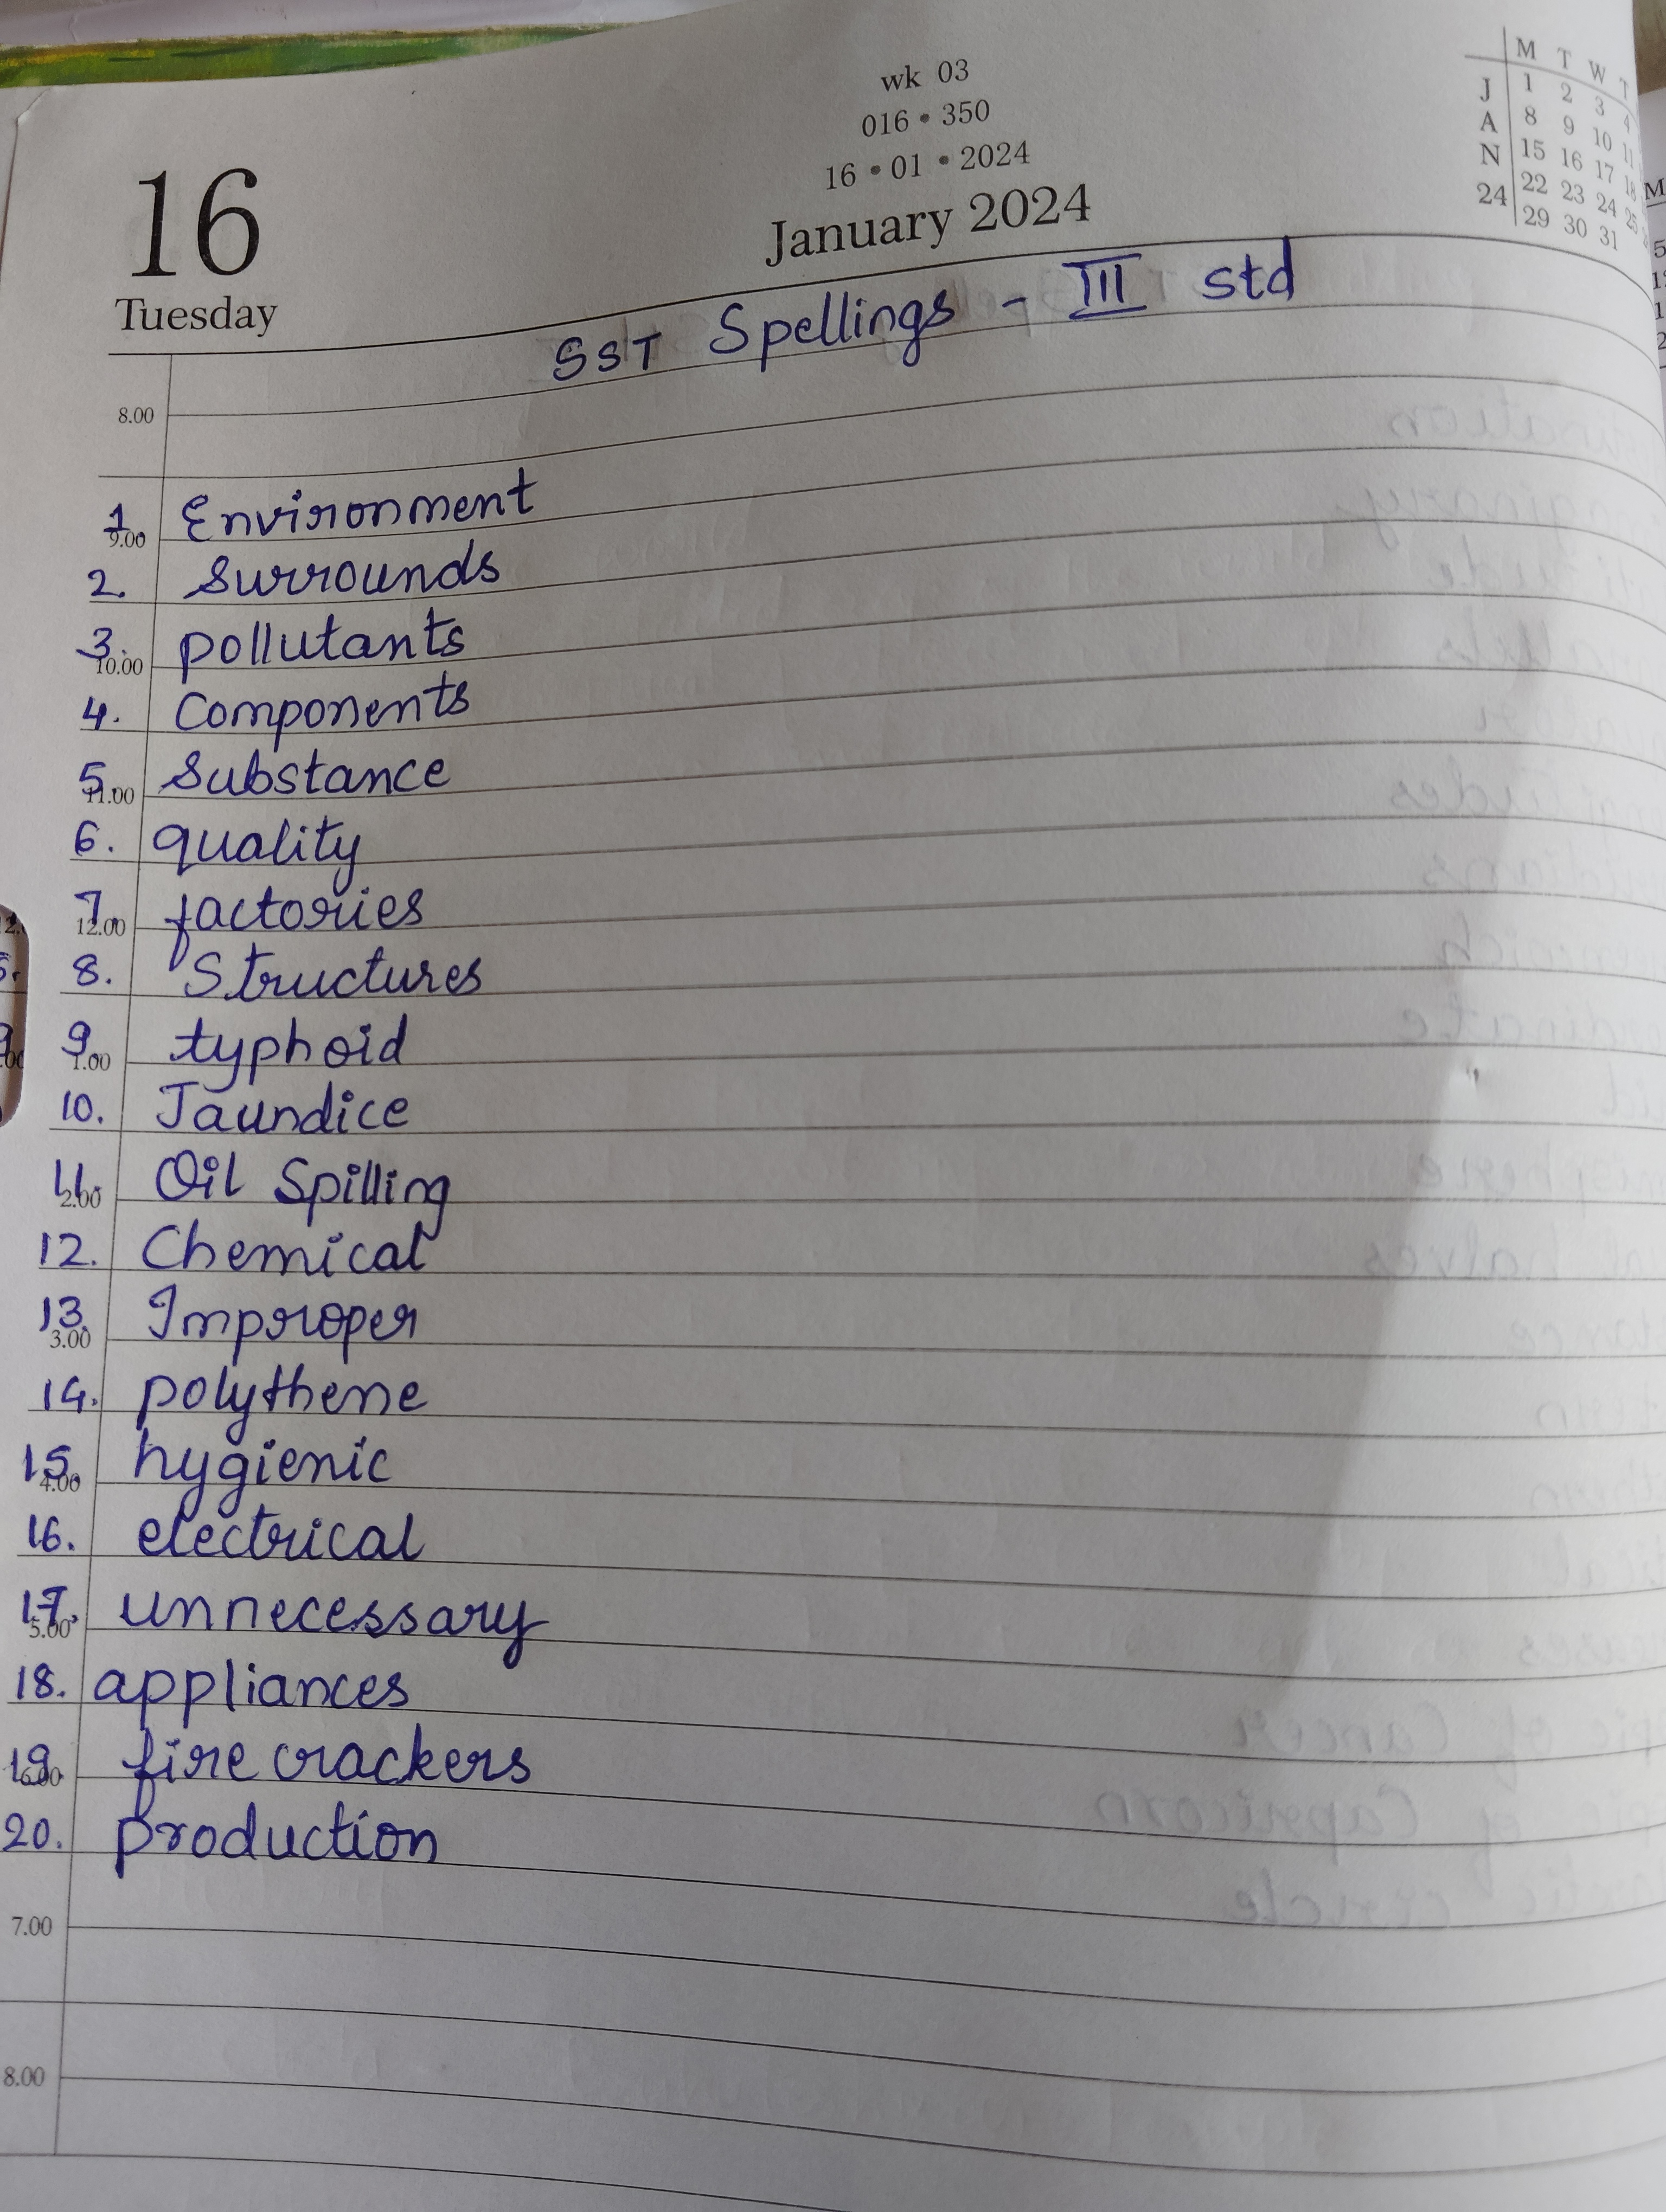 wk 03
016 • 350
16 • 01 • 2024
January 2024
16
Tuesday
M T W T
J 1 2 3 4
A 8 9 10 11
N 15 16 17 18
24 22 23 24 25
29 30 31
SST Spellings - III std
8.00
1. Environment
9.00
2. Surrounds
3. pollutants
10.00
4. Components
5. Substance
11.00
6. quality
7. factories
12.00
8. Structures
9. typhoid
1.00
10. Jaundice
11. Oil Spilling
2.00
12. Chemical
13. Improper
3.00
14. polythene
15. hygienic
4.00
16. electrical
17. unnecessary
5.00
18. appliances
19. fire crackers
6.00
20. production
7.00
8.00